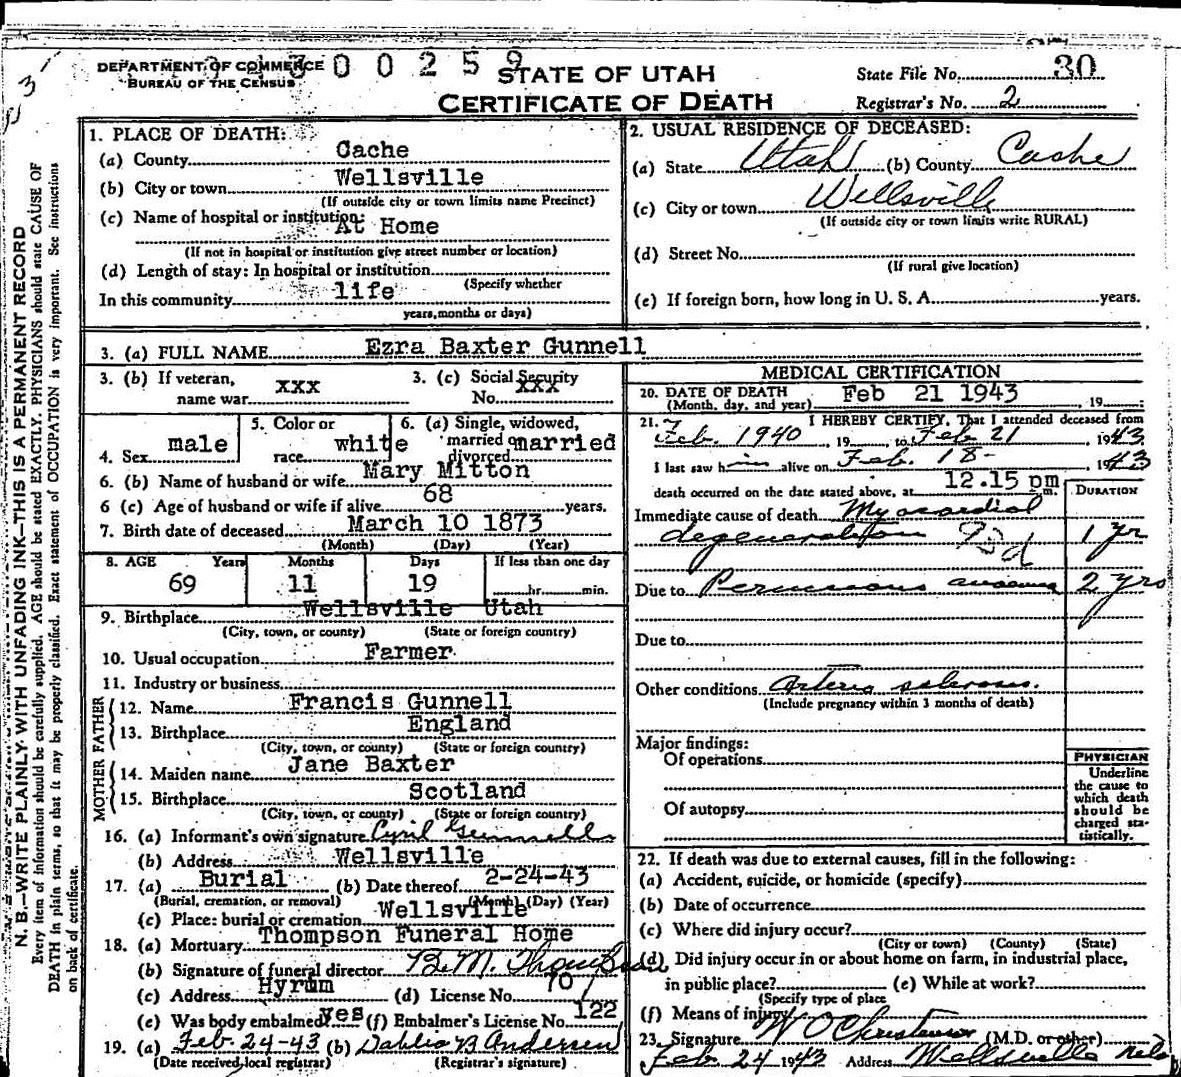 DEPARTMENT OF COMMERCE
BUREAU OF THE CENSUS
300259
STATE OF UTAH
CERTIFICATE OF DEATH
State File No. 30
Registrar's No. 2
N. B.—WRITE PLAINLY WITH UNFADING INK—THIS IS A PERMANENT RECORD
Every item of information should be carefully supplied. AGE should be stated EXACTLY. PHYSICIANS should state CAUSE OF
DEATH in plain terms, so that it may be properly classified. Exact statement of OCCUPATION is very important. See instructions
on back of certificate.
1. PLACE OF DEATH:
(a) County Cache
(b) City or town Wellsville
(If outside city or town limits name Precinct)
(c) Name of hospital or institution:
At Home
(If not in hospital or institution give street number or location)
(d) Length of stay: In hospital or institution
(Specify whether
In this community life
years, months or days)
2. USUAL RESIDENCE OF DECEASED:
(a) State Utah (b) County Cache
(c) City or town Wellsville
(If outside city or town limits write RURAL)
(d) Street No.
(If rural give location)
(e) If foreign born, how long in U. S. A. years.
3. (a) FULL NAME Ezra Baxter Gunnell
3. (b) If veteran, name war xxx
3. (c) Social Security No. xxx
4. Sex male
5. Color or race white
6. (a) Single, widowed, married or divorced married
6. (b) Name of husband or wife Mary Mitton
6 (c) Age of husband or wife if alive 68 years.
7. Birth date of deceased March 10 1873
(Month) (Day) (Year)
8. AGE Years Months Days If less than one day
69 11 19 hr. min.
9. Birthplace Wellsville Utah
(City, town, or county) (State or foreign country)
10. Usual occupation Farmer
11. Industry or business
FATHER
12. Name Francis Gunnell
13. Birthplace England
(City, town, or county) (State or foreign country)
MOTHER
14. Maiden name Jane Baxter
15. Birthplace Scotland
(City, town, or county) (State or foreign country)
16. (a) Informant's own signature Cyril Gunnell
(b) Address Wellsville
17. (a) Burial (b) Date thereof 2-24-43
(Burial, cremation, or removal) (Month) (Day) (Year)
(c) Place: burial or cremation Wellsville
18. (a) Mortuary Thompson Funeral Home
(b) Signature of funeral director B. M. Thompson
(c) Address Hyrum (d) License No. 70
(e) Was body embalmed? yes (f) Embalmer's License No. 122
19. (a) Feb. 24-43 (b) Dahlia B Andersen
(Date received local registrar) (Registrar's signature)
MEDICAL CERTIFICATION
20. DATE OF DEATH Feb 21 1943
(Month, day, and year) , 19 :
21. I HEREBY CERTIFY, That I attended deceased from
Feb. 1940, 19 , to Feb 21 1943
I last saw him alive on Feb. 18- , 1943
death occurred on the date stated above, at 12.15 pm m.
DURATION
Immediate cause of death Myocardial
degeneration 1 yr
Due to Pernicious anaemia 2 yrs
Due to
Other conditions Arterio sclerosis.
(Include pregnancy within 3 months of death)
Major findings:
Of operations
Of autopsy
PHYSICIAN
Underline
the cause to
which death
should be
charged sta-
tistically.
22. If death was due to external causes, fill in the following:
(a) Accident, suicide, or homicide (specify)
(b) Date of occurrence
(c) Where did injury occur?
(City or town) (County) (State)
(d) Did injury occur in or about home on farm, in industrial place,
in public place? (e) While at work?
(Specify type of place
(f) Means of injury
23. Signature W O Christensen (M.D. or other)
Feb. 24 1943 Address Wellsville